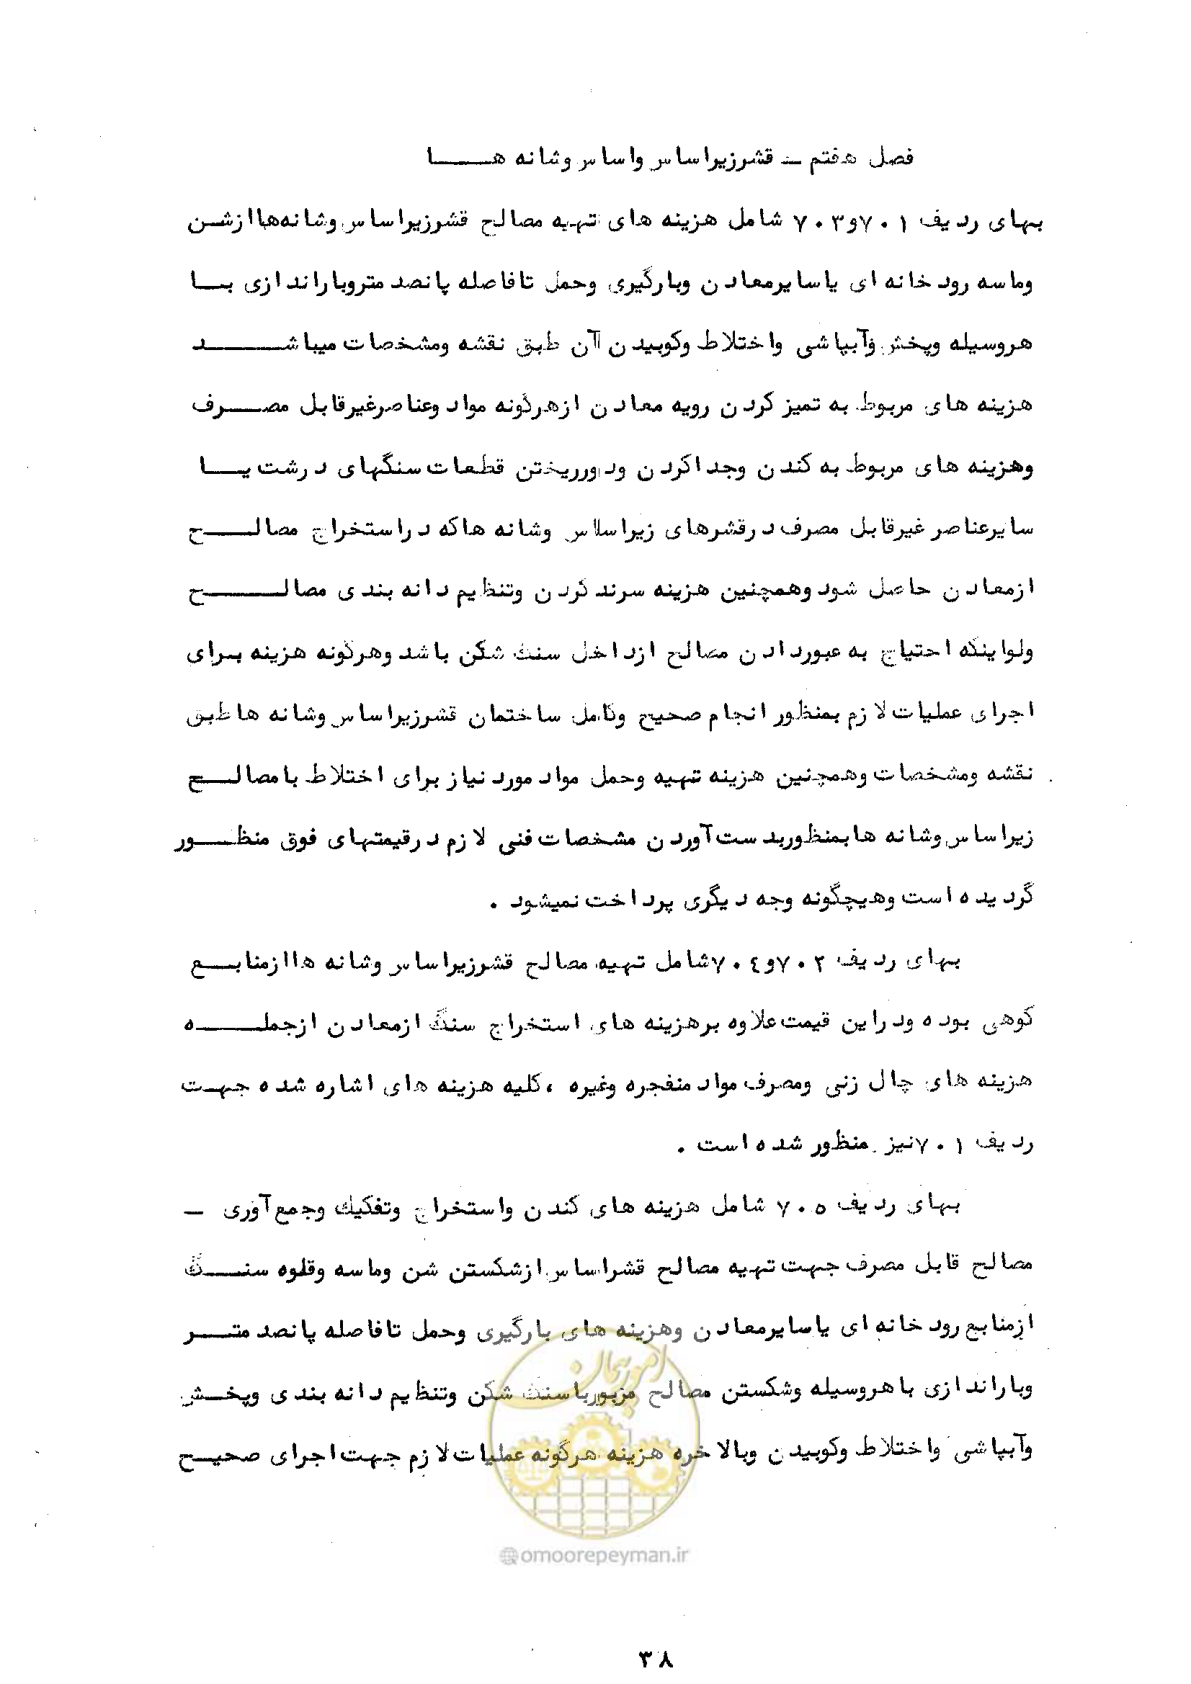 فصل هفتم – قشرزیراساس واساس وشانه هـــا
بهای ردیف ۷۰۱و۷۰۳ شامل هزینه های تهیه مصالح قشرزیراساس وشانه‌هاازشن
وماسه رودخانه ای یاسایرمعادن وبارگیری وحمل تافاصله پانصد متروباراندازی بـا
هروسیله وپخش وآبپاشی واختلاط وکوبیدن آن طبق نقشه ومشخصات میباشـــد
هزینه های مربوط به تمیز کردن رویه معادن ازهرگونه مواد وعناصرغیرقابل مصـرف
وهزینه های مربوط به کندن وجداکردن ودورریختن قطعات سنگهای درشت یـا
سایرعناصر غیرقابل مصرف درقشرهای زیراساس وشانه هاکه دراستخراج مصالـح
ازمعادن حاصل شود وهمچنین هزینه سرند کردن وتنظیم دانه بندی مصالـــح
ولواینکه احتیاج به عبوردادن مصالح ازداخل سنگ شکن باشد وهرگونه هزینه بـرای
اجرای عملیات لازم بمنظور انجام صحیح وکامل ساختمان قشرزیراساس وشانه هاطبق
نقشه ومشخصات وهمچنین هزینه تهیه وحمل مواد مورد نیاز برای اختلاط بامصالـح
زیراساس وشانه هابمنظوربدست آوردن مشخصات فنی لازم درقیمتهای فوق منظـور
گردیده است وهیچگونه وجه دیگری پرداخت نمیشود .
بهای ردیف ۷۰۲و۷۰۴شامل تهیه مصالح قشرزیراساس وشانه هاازمنابـع
کوهی بوده ودراین قیمت علاوه برهزینه های استخراج سنگ ازمعادن ازجملـــه
هزینه های چال زنی ومصرف مواد منفجره وغیره ،کلیه هزینه های اشاره شده جهـت
ردیف ۷۰۱نیز منظور شده است .
بهای ردیف ۷۰۵ شامل هزینه های کندن واستخراج وتفکیك وجمع آوری –
مصالح قابل مصرف جهت تهیه مصالح قشراساس ازشکستن شن وماسه وقلوه سنـگ
ازمنابع رودخانه ای یاسایرمعادن وهزینه های بارگیری وحمل تافاصله پانصد متـر
وباراندازی باهروسیله وشکستن مصالح مزبورباسنگ شکن وتنظیم دانه بندی وپخـش
وآبپاشی واختلاط وکوبیدن وبالاخره هزینه هرگونه عملیات لازم جهت اجرای صحیـح
امور پیمان
@omoorepeyman.ir
۳۸